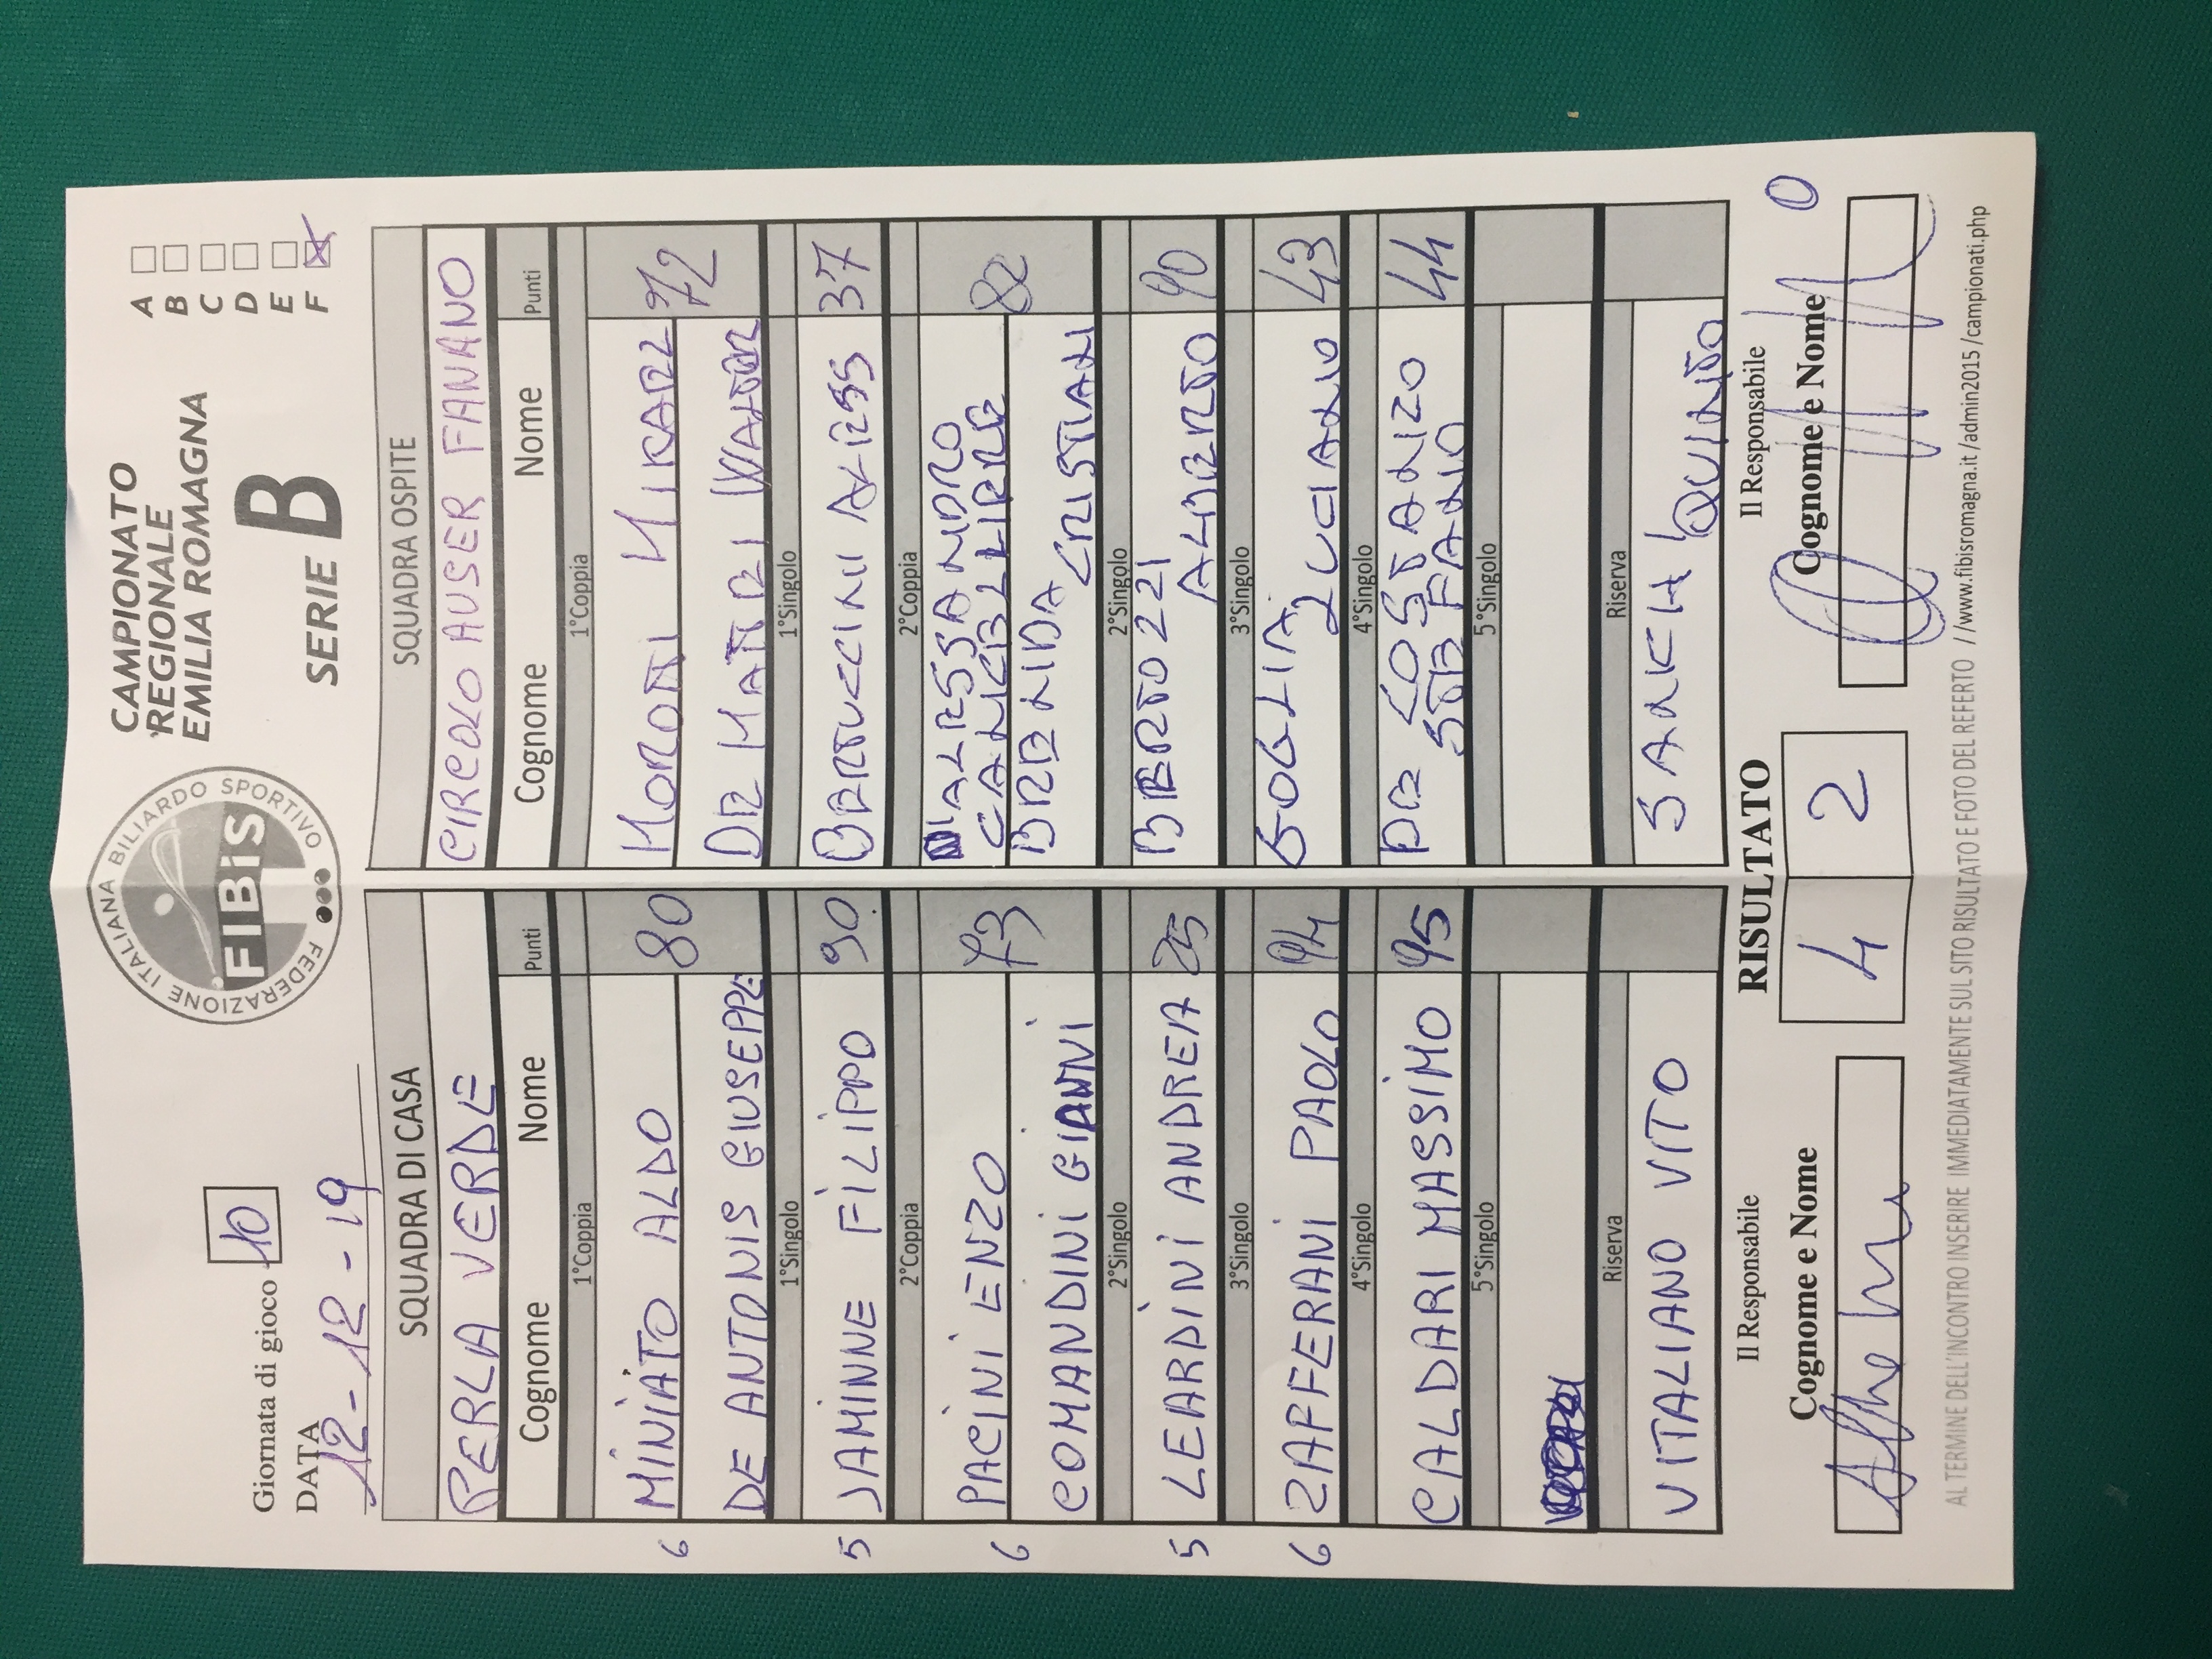 Giornata di gioco 10
DATA
12-12-19
FEDERAZIONE ITALIANA BILIARDO SPORTIVO
FIBiS
CAMPIONATO
REGIONALE
EMILIA ROMAGNA
SERIE B
A
B
C
D
E
F X
SQUADRA DI CASA
PERLA VERDE
Cognome Nome Punti
1°Coppia
6 MINIATO ALDO 80
DE ANTONIS GIUSEPPE
1°Singolo
5 JAMINNE FILIPPO 90
2°Coppia
6 PACINI ENZO 73
COMANDINI GIANNI
2°Singolo
5 LEARDINI ANDREA 25
3°Singolo
6 ZAFFERANI PAOLO 94
4°Singolo
CALDARI MASSIMO 95
5°Singolo
Riserva
VITALIANO VITO
SQUADRA OSPITE
CIRCOLO AUSER FANANO
Cognome Nome Punti
1°Coppia
MOROTTI 72
DE WALTER
1°Singolo
BERTUCCINI 37
2°Coppia
ALESSANDRO 82
BRENDA CRISTIAN
2°Singolo
BERTOZZI ALBERTO 90
3°Singolo
GOGLIA LUCIANO 43
4°Singolo
DE COSTANZO 44
STEFANO
5°Singolo
Riserva
QUINTO
Il Responsabile
Cognome e Nome
RISULTATO
4 2
Il Responsabile
Cognome e Nome
0
AL TERMINE DELL'INCONTRO INSERIRE IMMEDIATAMENTE SUL SITO RISULTATO E FOTO DEL REFERTO //www.fibisromagna.it /admin2015 /campionati.php